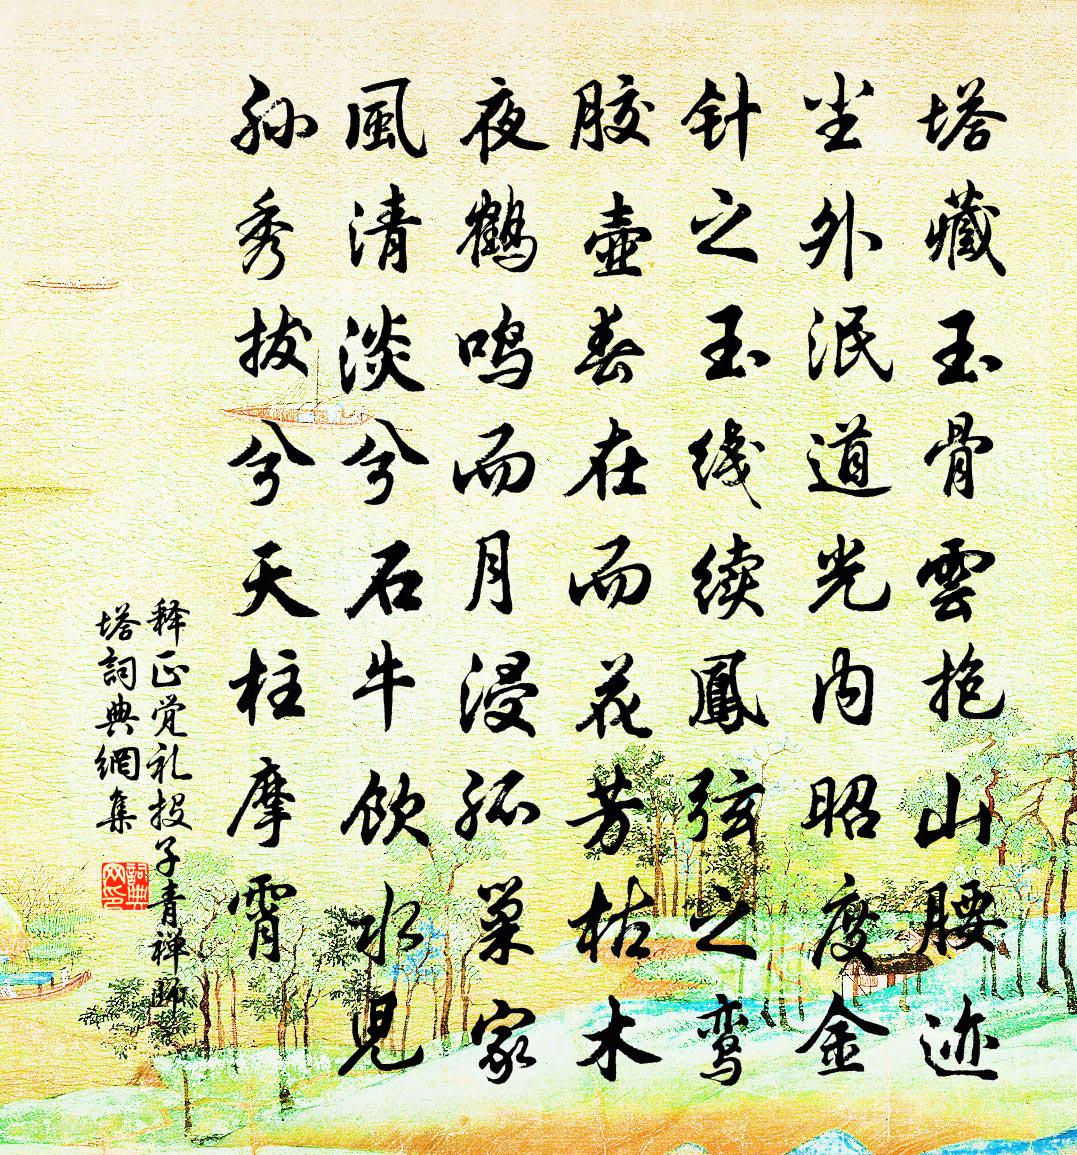 塔藏玉骨雲抱山腰迹
尘外泯道光内昭度金
针之玉线续鳳弦之鸾
胶壺春在而花芳枯木
夜鶴鸣而月浸孤巢家
風清淡兮石牛饮水見
孙秀拔兮天柱摩霄
释正觉礼投子青禅师
塔詞典網集